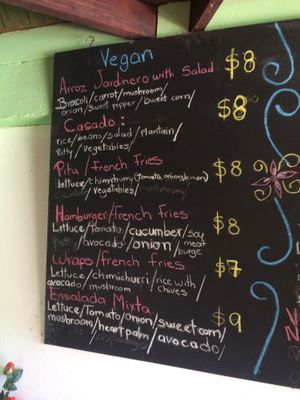 Vegan
Arroz Jardinero with Salad $8
Brocoli/carrot/mushroom/
onion/sweet pepper/sweet corn/ $8
Casado:
rice/beans/salad/Plantain/
Patty/vegetables/
Pita/french fries $8
lettuce/chimichurri(tomato,onion,lemon)
/vegetables/mushroom/
Hamburger/french fries $8
Lettuce/Tomato/cucumber/soy
/avocado/onion/meat
burge
Wraps/french fries $7
Lettuce/chimichurri/rice with/
avocado/mushroom/chives
Ensalada Mixta $9
Lettuce/Tomato/onion/sweetcorn/
mushroom/heart palm/avocado/